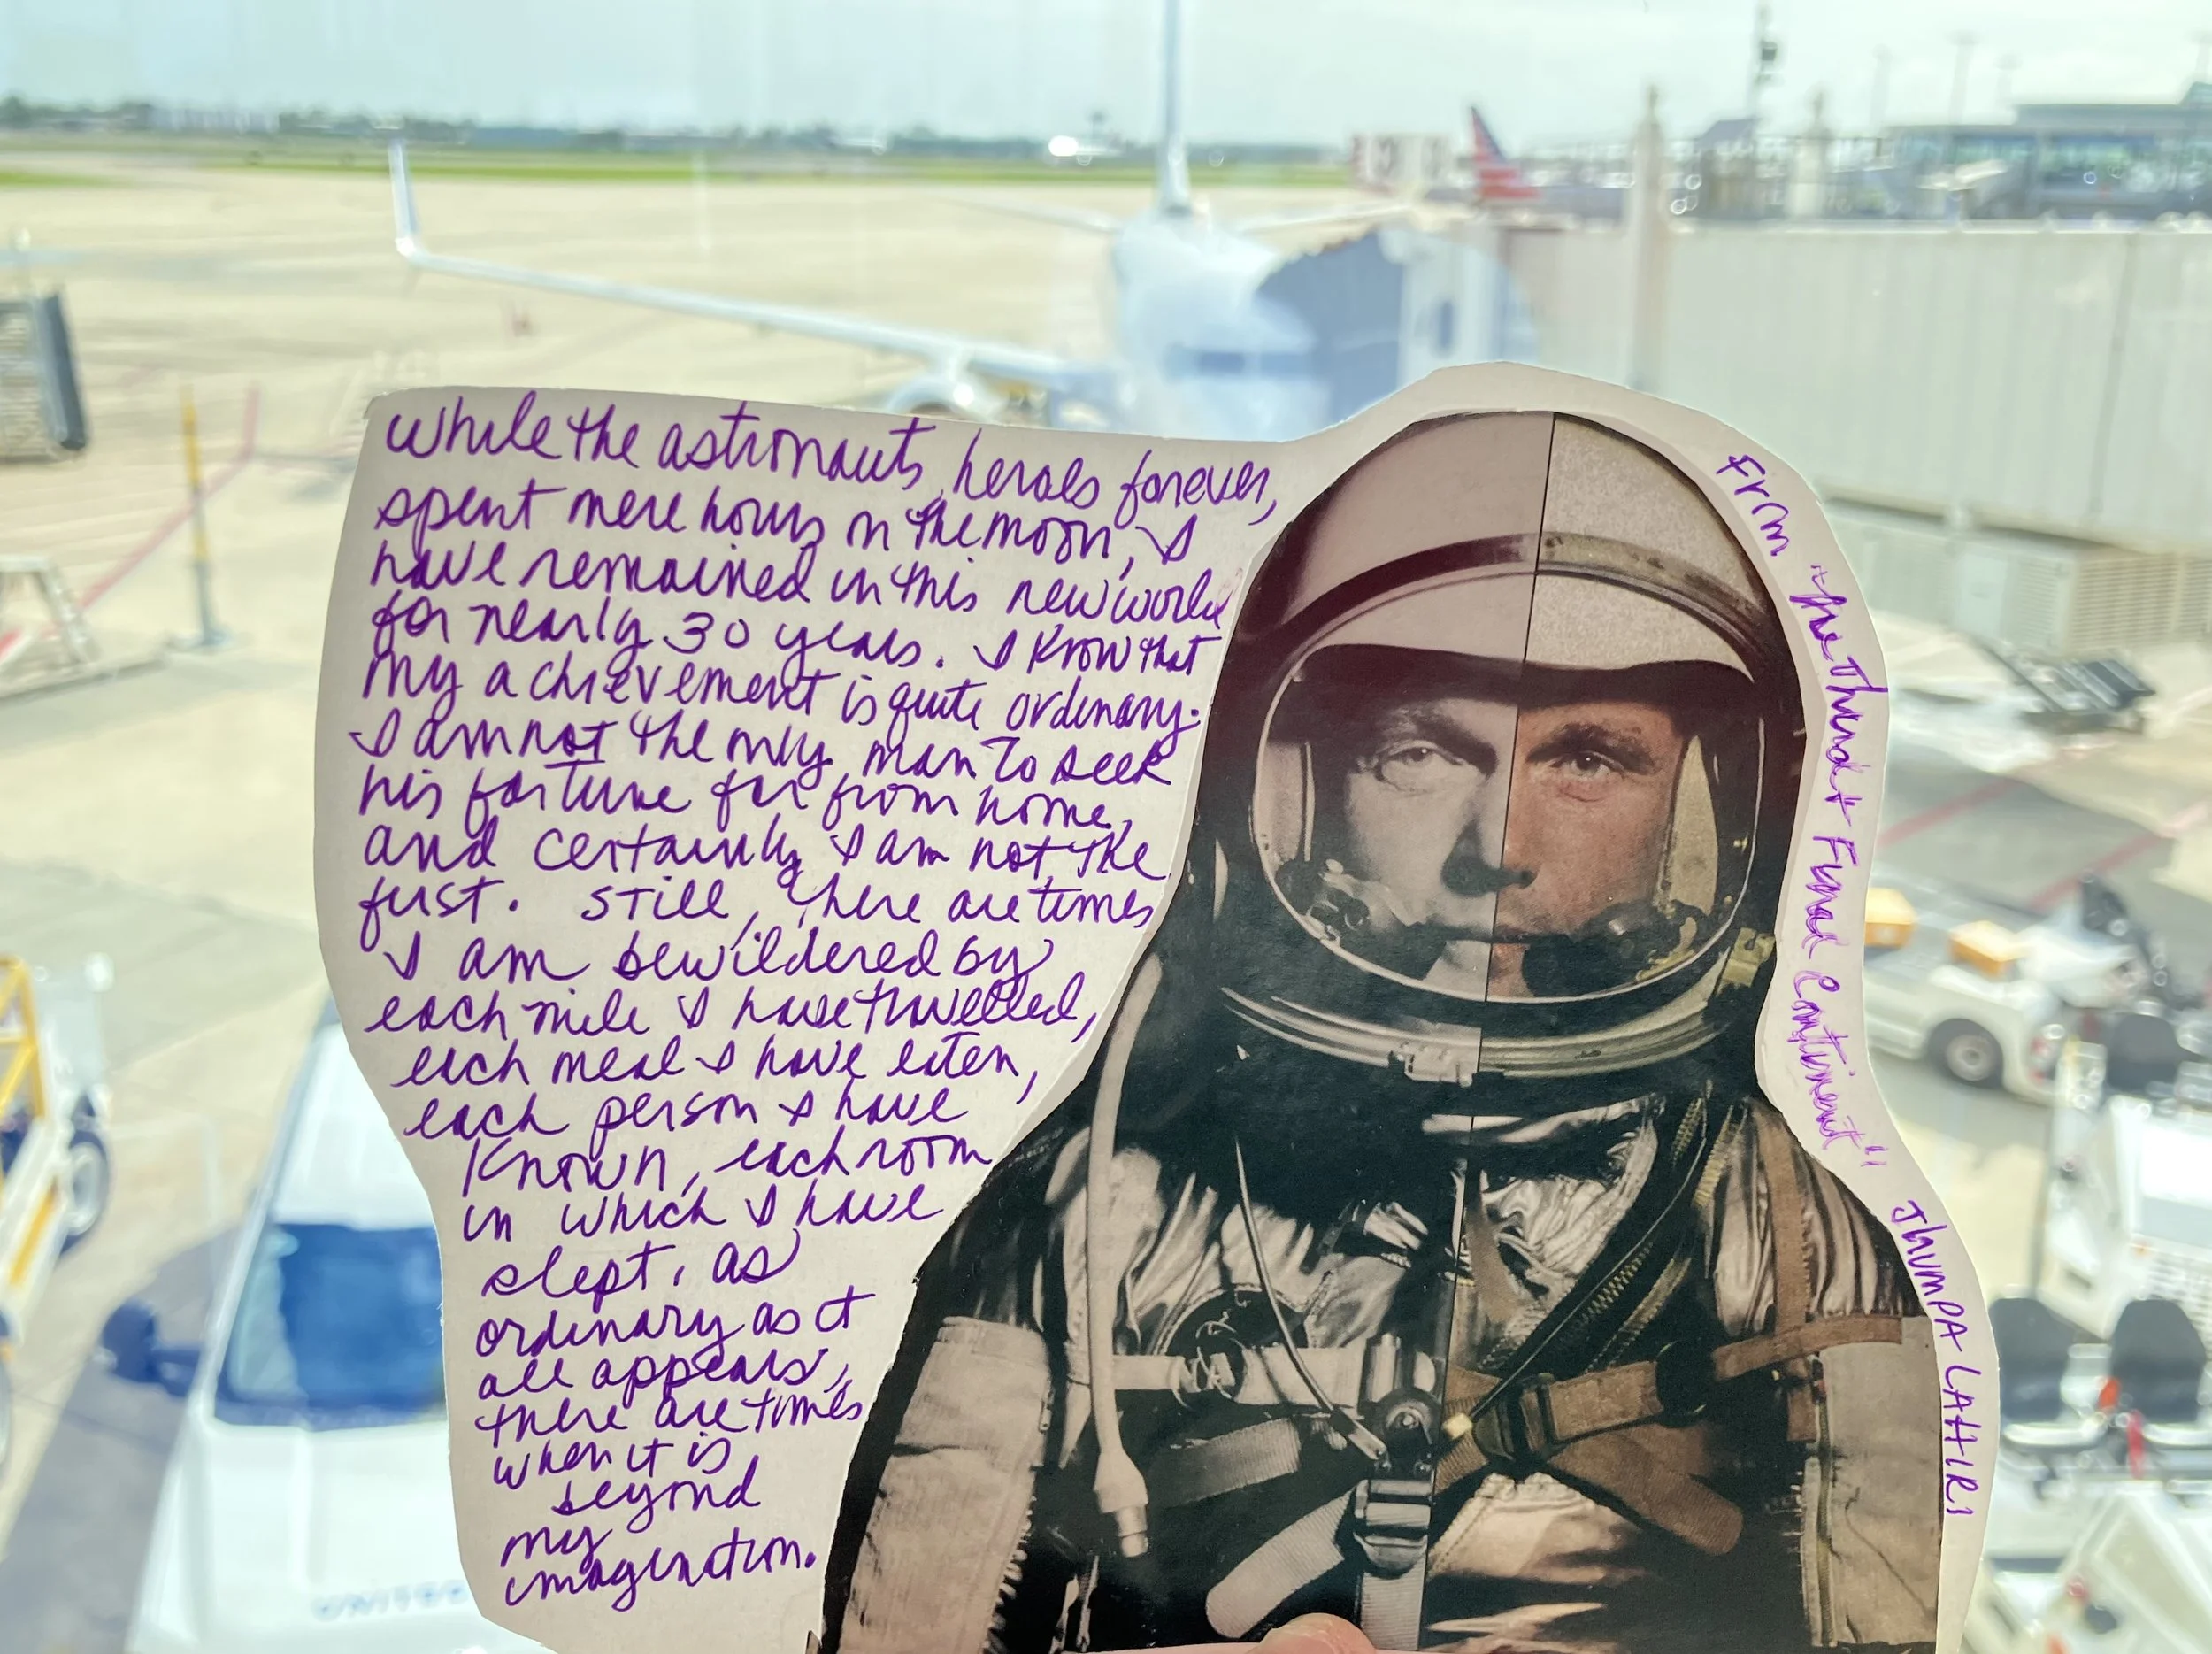 while the astronauts, heroes forever,
spent mere hours on the moon, I
have remained in this new world
for nearly 30 years. I know that
my achievement is quite ordinary.
I am not the only man to seek
his fortune far from home,
and certainly I am not the
first. Still, there are times
I am bewildered by
each mile I have travelled,
each meal I have eaten,
each person I have
known, each room
in which I have
slept. As
ordinary as it
all appears,
there are times
when it is
beyond
my
imagination.
From "the Third + Final Continent"
Jhumpa LAHIRI
UNITED